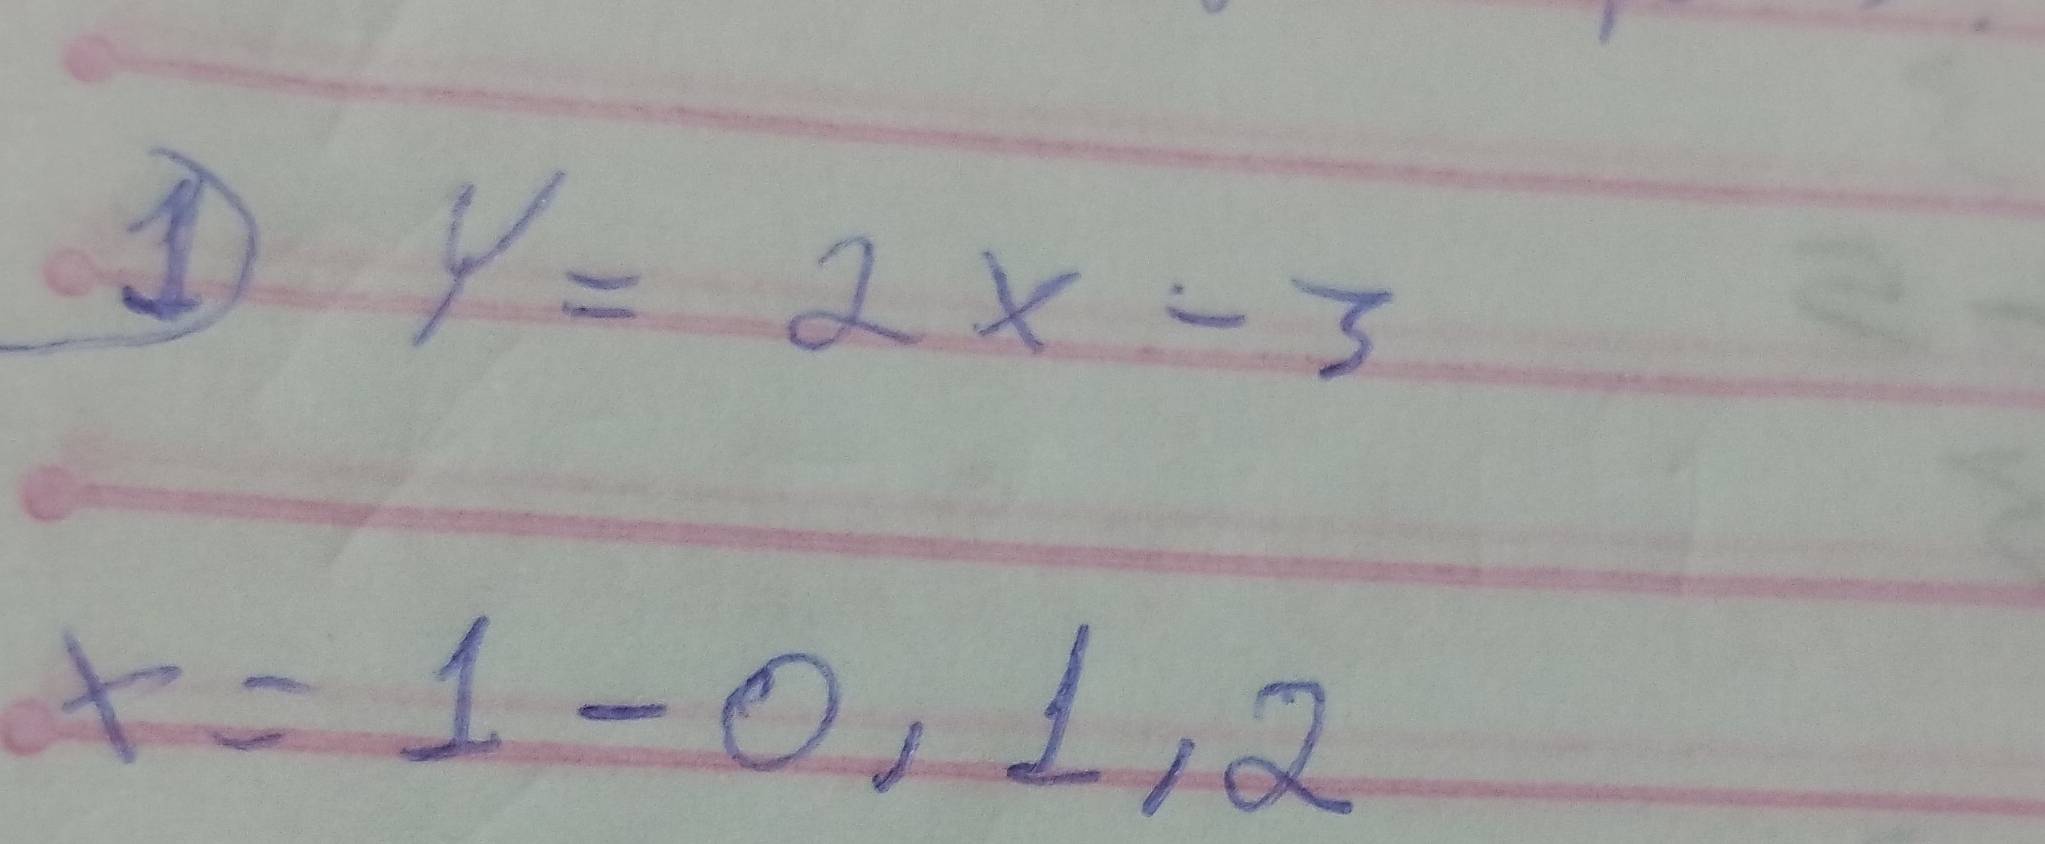 1) Y = 2x - 3
x = 1 - 0, 1, 2